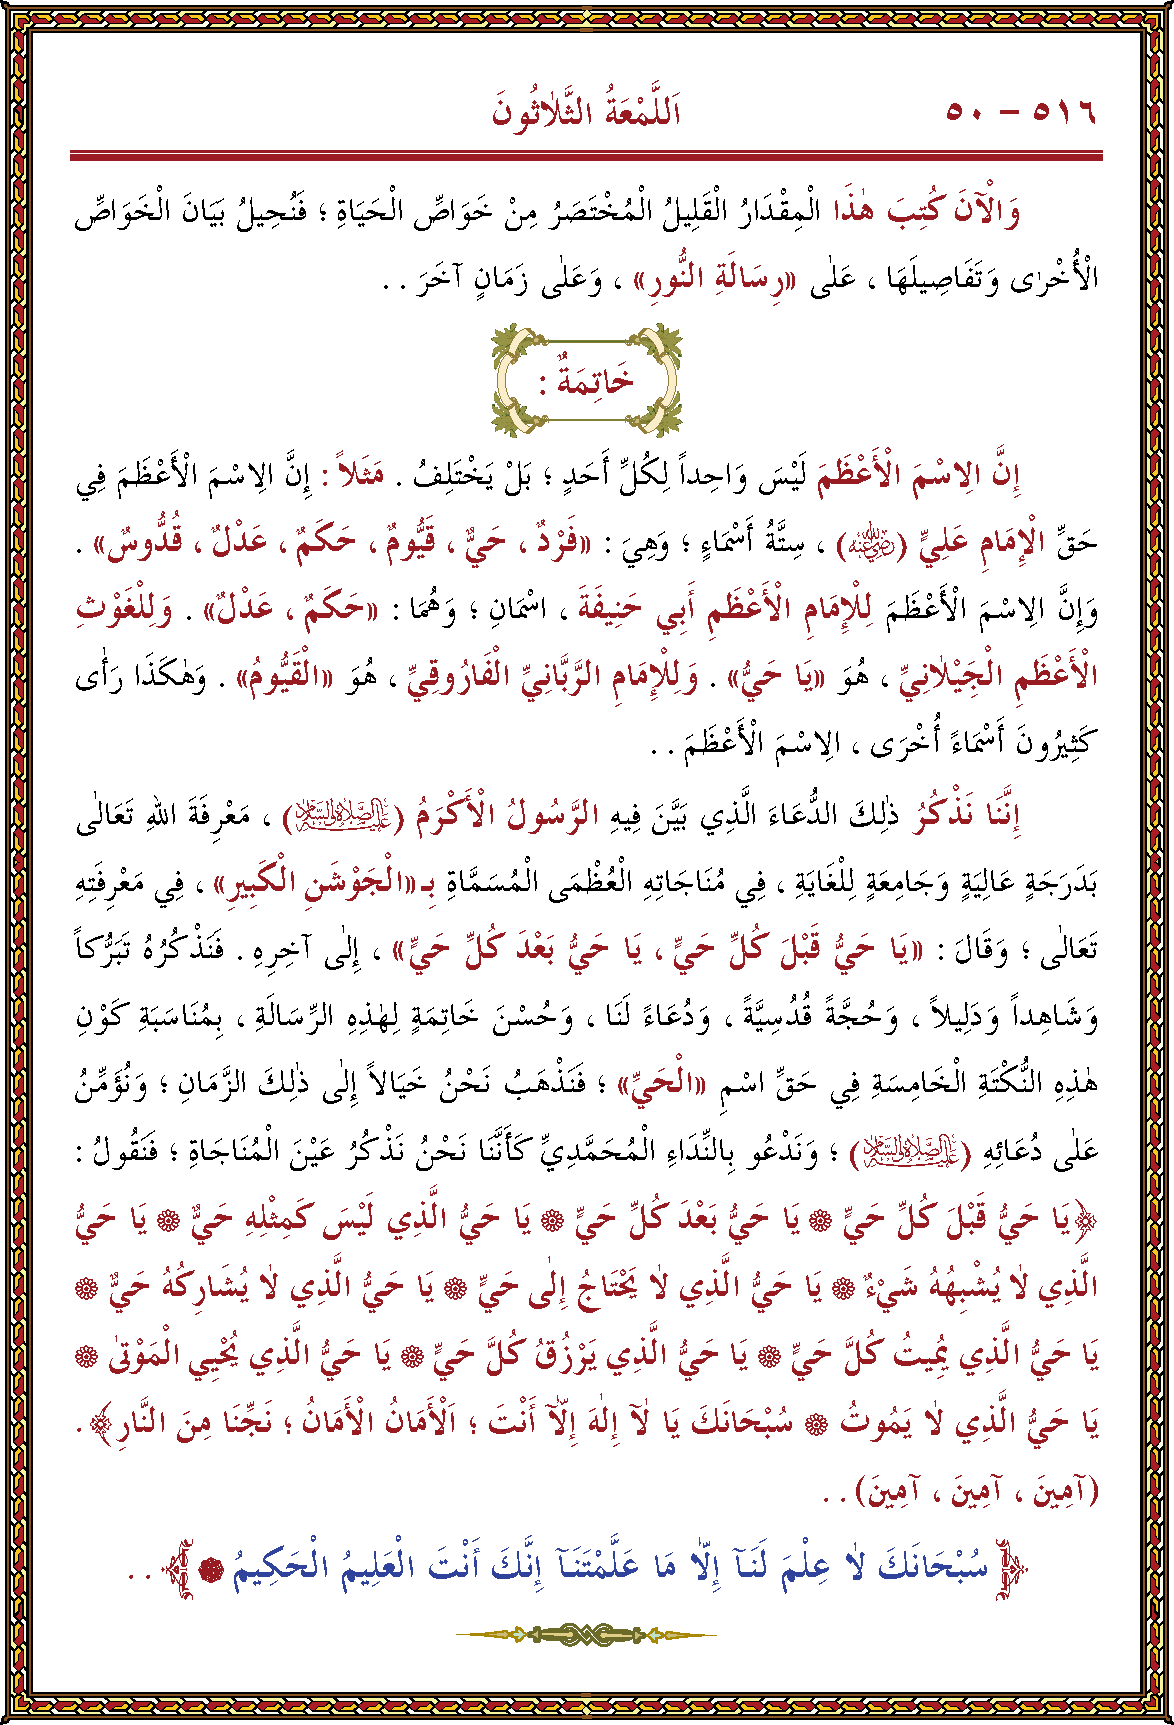 ٥١٦ – ٥٠
اَللَّمْعَةُ الثَّلَاثُونَ
وَالْآنَ كُتِبَ هٰذَا الْمِقْدَارُ الْقَلِيلُ الْمُخْتَصَرُ مِنْ خَوَاصِّ الْحَيَاةِ ؛ فَنُحِيلُ بَيَانَ الْخَوَاصِّ
الْأُخْرٰى وَتَفَاصِيلَهَا ، عَلٰى «رِسَالَةِ النُّورِ» ، وَعَلٰى زَمَانٍ آخَرَ . .
خَاتِمَةٌ :
إِنَّ الِاسْمَ الْأَعْظَمَ لَيْسَ وَاحِداً لِكُلِّ أَحَدٍ ؛ بَلْ يَخْتَلِفُ . مَثَلاً : إِنَّ الِاسْمَ الْأَعْظَمَ فِي
حَقِّ الْإِمَامِ عَلِيٍّ (رضي الله عنه) ، سِتَّةُ أَسْمَاءٍ ؛ وَهِيَ : «فَرْدٌ ، حَيٌّ ، قَيُّومٌ ، حَكَمٌ ، عَدْلٌ ، قُدُّوسٌ» .
وَإِنَّ الِاسْمَ الْأَعْظَمَ لِلْإِمَامِ الْأَعْظَمِ أَبِي حَنِيفَةَ ، اسْمَانِ ؛ وَهُمَا : «حَكَمٌ ، عَدْلٌ» . وَلِلْغَوْثِ
الْأَعْظَمِ الْجَيْلَانِيِّ ، هُوَ «يَا حَيُّ» . وَلِلْإِمَامِ الرَّبَّانِيِّ الْفَارُوقِيِّ ، هُوَ «الْقَيُّومُ» . وَهٰكَذَا رَأٰى
كَثِيرُونَ أَسْمَاءً أُخْرَى ، الِاسْمَ الْأَعْظَمَ . .
إِنَّنَا نَذْكُرُ ذٰلِكَ الدُّعَاءَ الَّذِي بَيَّنَ فِيهِ الرَّسُولُ الْأَكْرَمُ (عليه الصلاة والسلام) ، مَعْرِفَةَ اللهِ تَعَالٰى
بَدَرَجَةٍ عَالِيَةٍ وَجَامِعَةٍ لِلْغَايَةِ ، فِي مُنَاجَاتِهِ الْعُظْمَى الْمُسَمَّاةِ بِـ«الْجَوْشَنِ الْكَبِيرِ» ، فِي مَعْرِفَتِهِ
تَعَالٰى ؛ وَقَالَ : «يَا حَيُّ قَبْلَ كُلِّ حَيٍّ ، يَا حَيُّ بَعْدَ كُلِّ حَيٍّ» ، إِلٰى آخِرِهِ . فَنَذْكُرُهُ تَبَرُّكاً
وَشَاهِداً وَدَلِيلاً ، وَحُجَّةً قُدُسِيَّةً ، وَدُعَاءً لَنَا ، وَحُسْنَ خَاتِمَةٍ لِهٰذِهِ الرِّسَالَةِ ، بِمُنَاسَبَةِ كَوْنِ
هٰذِهِ النُّكْتَةِ الْخَامِسَةِ فِي حَقِّ اسْمِ «الْحَيِّ» ؛ فَنَذْهَبُ نَحْنُ خَيَالاً إِلٰى ذٰلِكَ الزَّمَانِ ؛ وَنُؤَمِّنُ
عَلٰى دُعَائِهِ (عليه الصلاة والسلام) ؛ وَنَدْعُو بِالنِّدَاءِ الْمُحَمَّدِيِّ كَأَنَّنَا نَحْنُ نَذْكُرُ عَيْنَ الْمُنَاجَاةِ ؛ فَنَقُولُ :
﴿يَا حَيُّ قَبْلَ كُلِّ حَيٍّ ۞ يَا حَيُّ بَعْدَ كُلِّ حَيٍّ ۞ يَا حَيُّ الَّذِي لَيْسَ كَمِثْلِهِ حَيٌّ ۞ يَا حَيُّ
الَّذِي لَا يُشْبِهُهُ شَيْءٌ ۞ يَا حَيُّ الَّذِي لَا يَحْتَاجُ إِلٰى حَيٍّ ۞ يَا حَيُّ الَّذِي لَا يُشَارِكُهُ حَيٌّ ۞
يَا حَيُّ الَّذِي يُمِيتُ كُلَّ حَيٍّ ۞ يَا حَيُّ الَّذِي يَرْزُقُ كُلَّ حَيٍّ ۞ يَا حَيُّ الَّذِي يُحْيِي الْمَوْتٰى ۞
يَا حَيُّ الَّذِي لَا يَمُوتُ ۞ سُبْحَانَكَ يَا لَآ إِلٰهَ إِلَّآ أَنْتَ ؛ اَلْأَمَانُ الْأَمَانُ ؛ نَجِّنَا مِنَ النَّارِ﴾ .
(آمِينَ ، آمِينَ ، آمِينَ) . .
﴿سُبْحَانَكَ لَا عِلْمَ لَنَآ إِلَّا مَا عَلَّمْتَنَآ إِنَّكَ أَنْتَ الْعَلِيمُ الْحَكِيمُ ۞﴾ . .